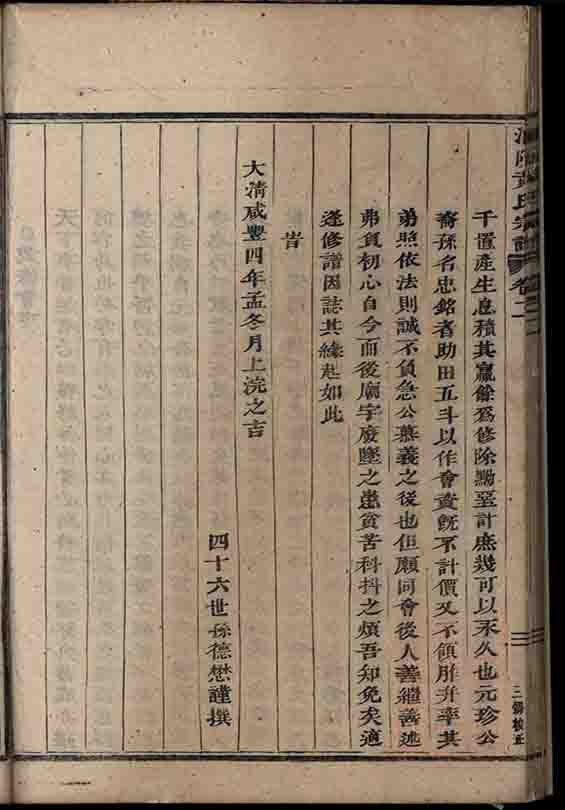 千置產生息積其贏餘為修除黝堊計庶幾可以永久也元珍公
裔孫名忠銘者助田五斗以作會資旣不計價又不領胙幷率其
弟照依法則誠不負急公慕義之後也但願同會後人善繼善述
弗負初心自今而後廟宇廢墜之患貧苦科抖之煩吾知免矣適
逢修譜因誌其緣起如此
旹
大清咸豐四年孟冬月上浣之吉
四十六世孫德懋謹撰
黃氏宗譜
卷二
三錫校正